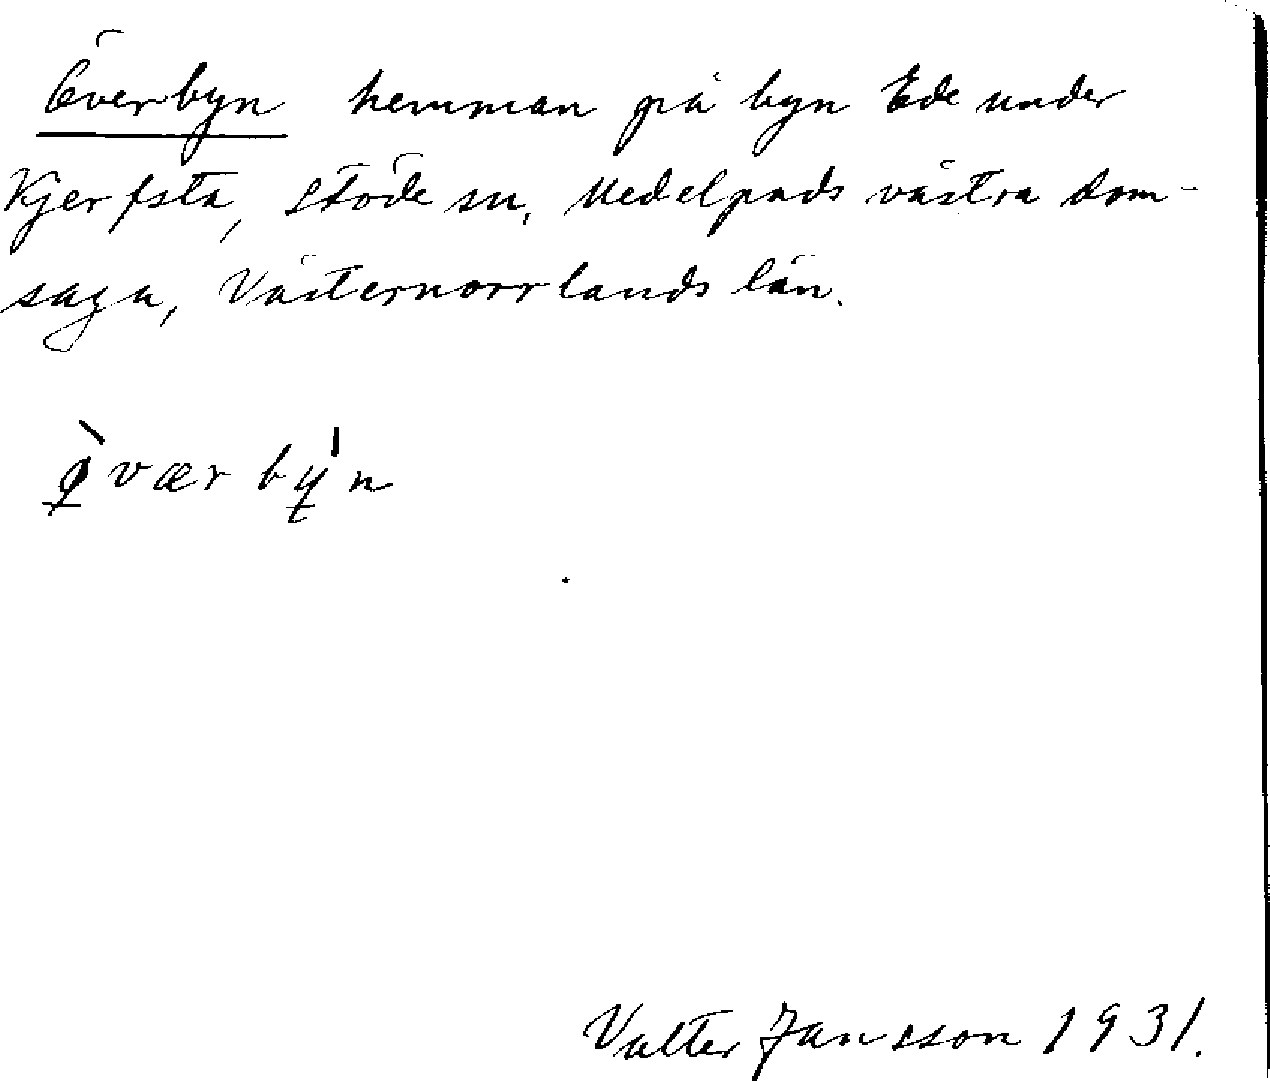 Överbyn hemman på byn Ede under
Kjerfsta, Stöde sn, Medelpads västra dom-
saga, Västernorrlands län.
ò̱værby̱'n
Valter Jansson 1931.